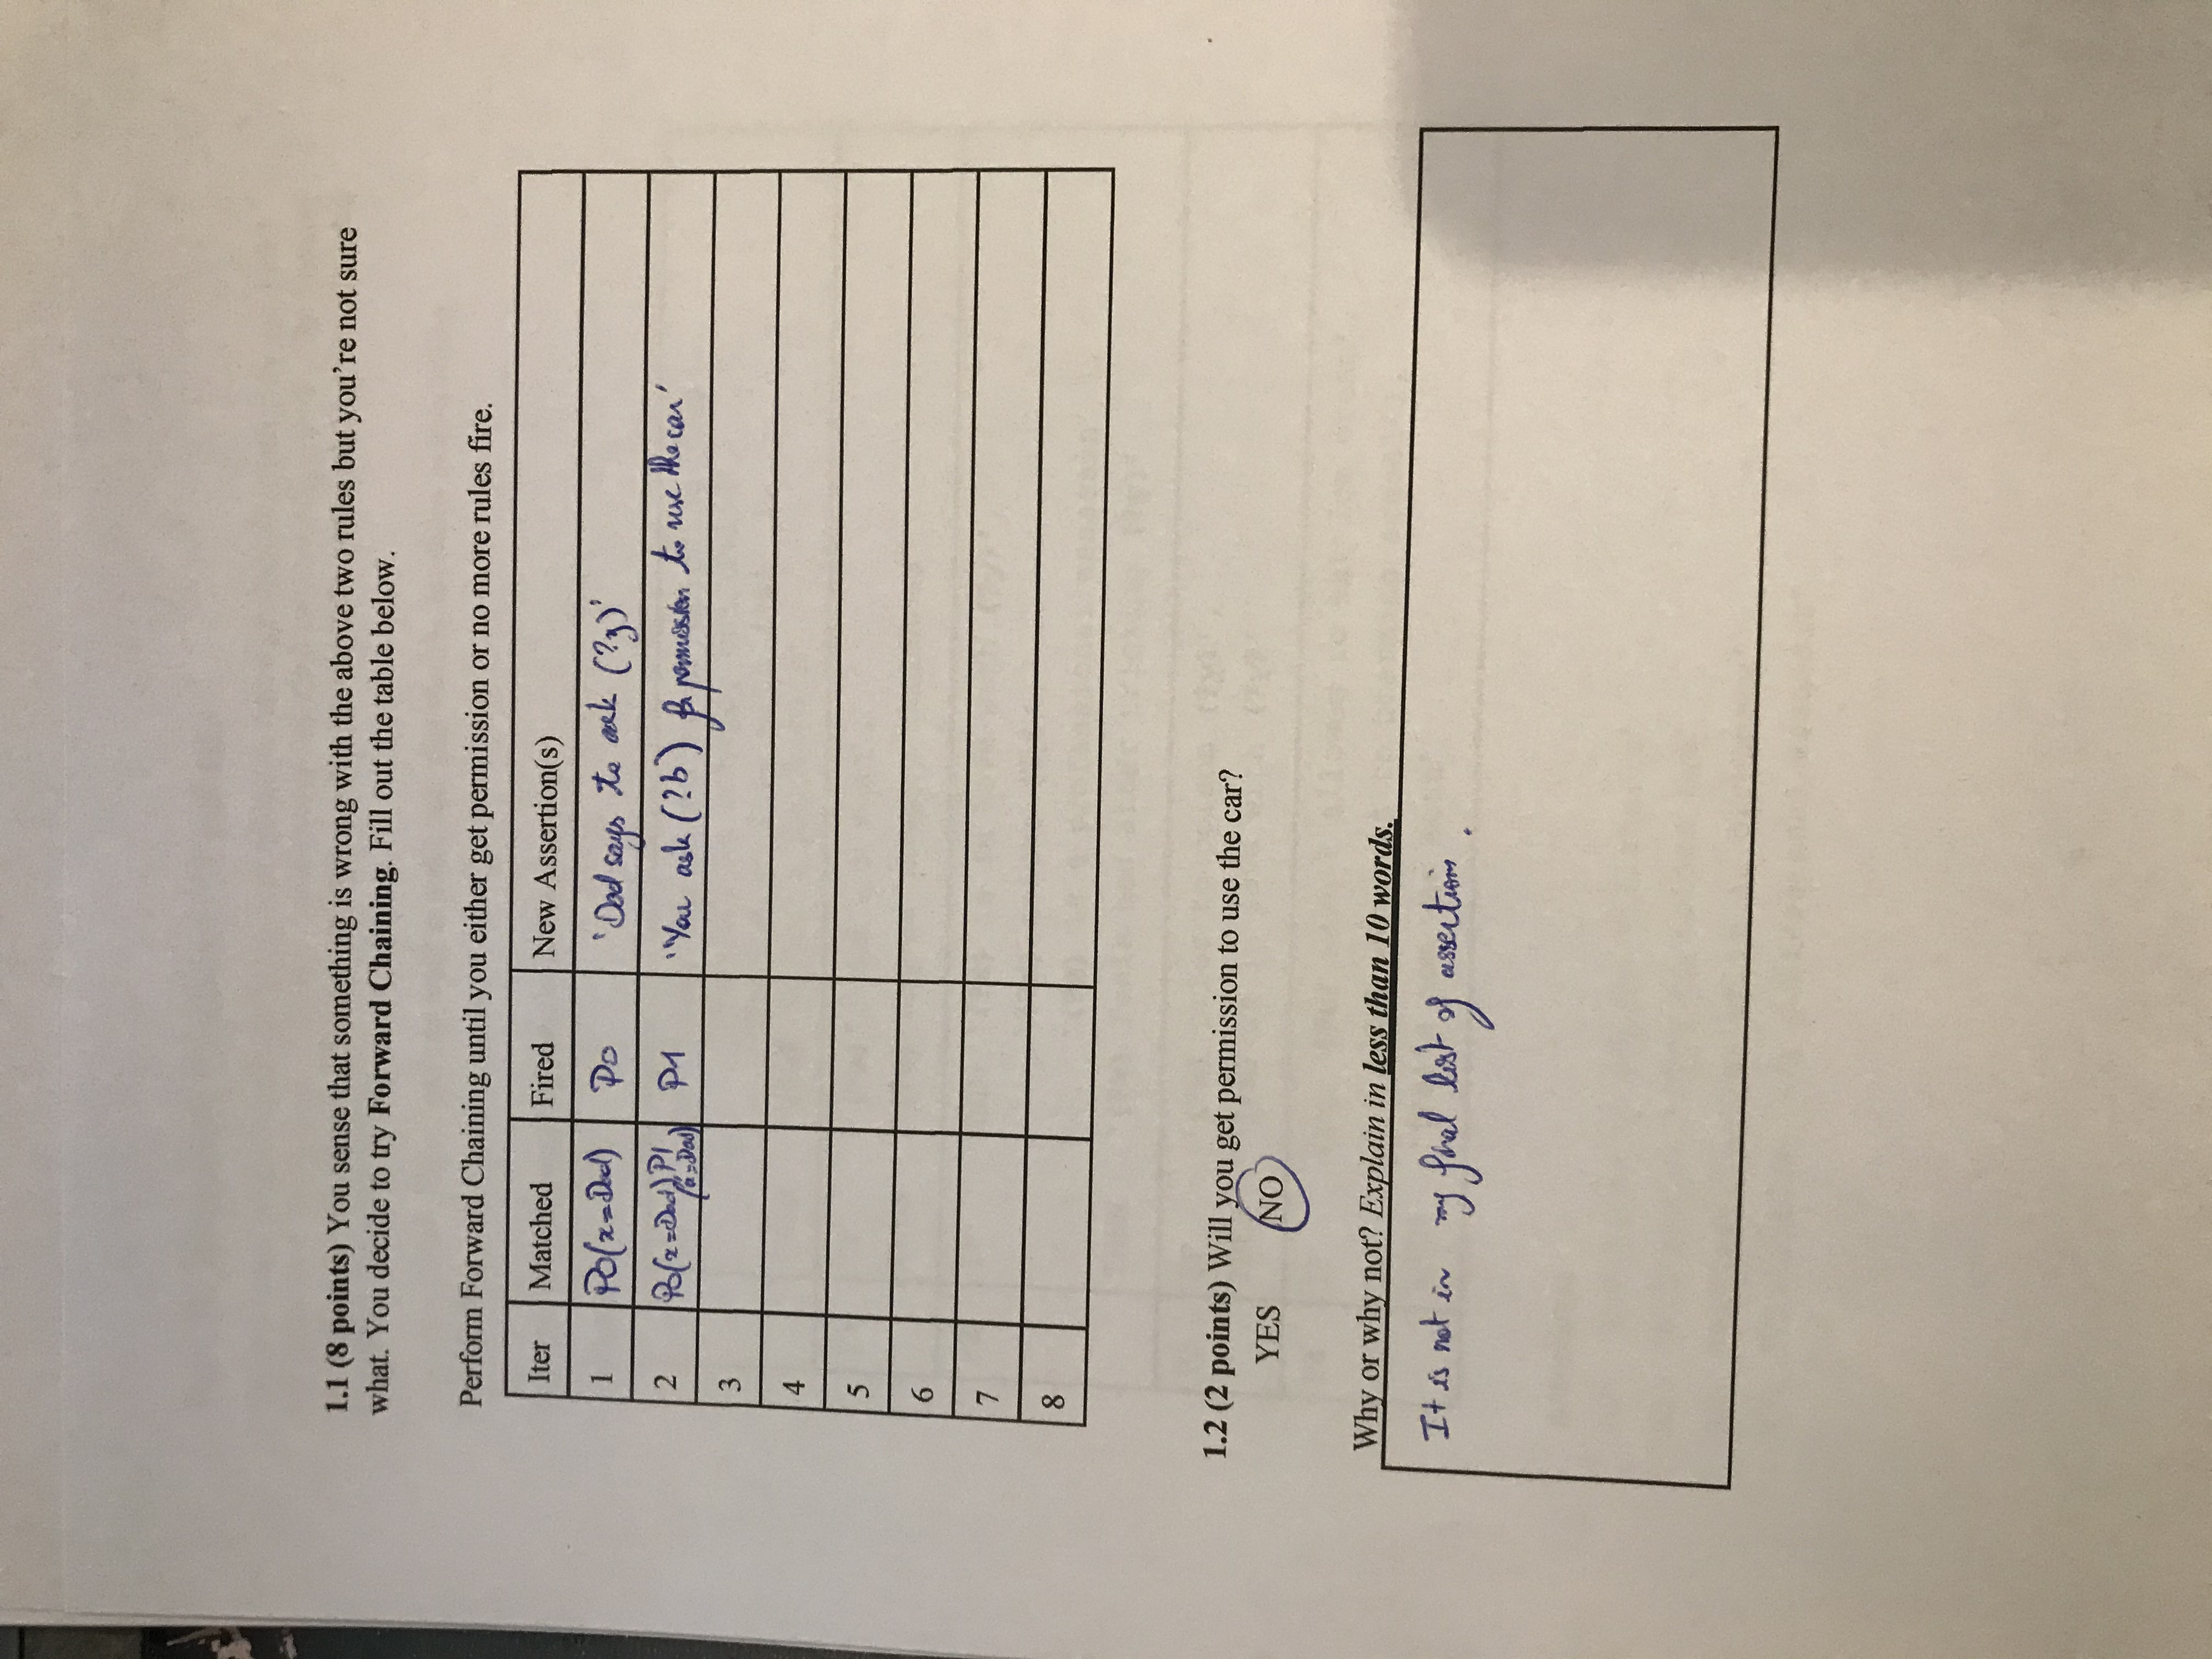 1.1 (8 points) You sense that something is wrong with the above two rules but you're not sure
what. You decide to try Forward Chaining. Fill out the table below.
Perform Forward Chaining until you either get permission or no more rules fire.
Iter Matched Fired New Assertion(s)
1 P0(x=Dad) P0 'Dad says to ask (?z)'
2 P0(x=Dad), P1 (a=Dad) P1 'You ask (?b) for permission to use the car'
3
4
5
6
7
8
1.2 (2 points) Will you get permission to use the car?
YES NO
Why or why not? Explain in less than 10 words.
It is not in my final list of assertions.